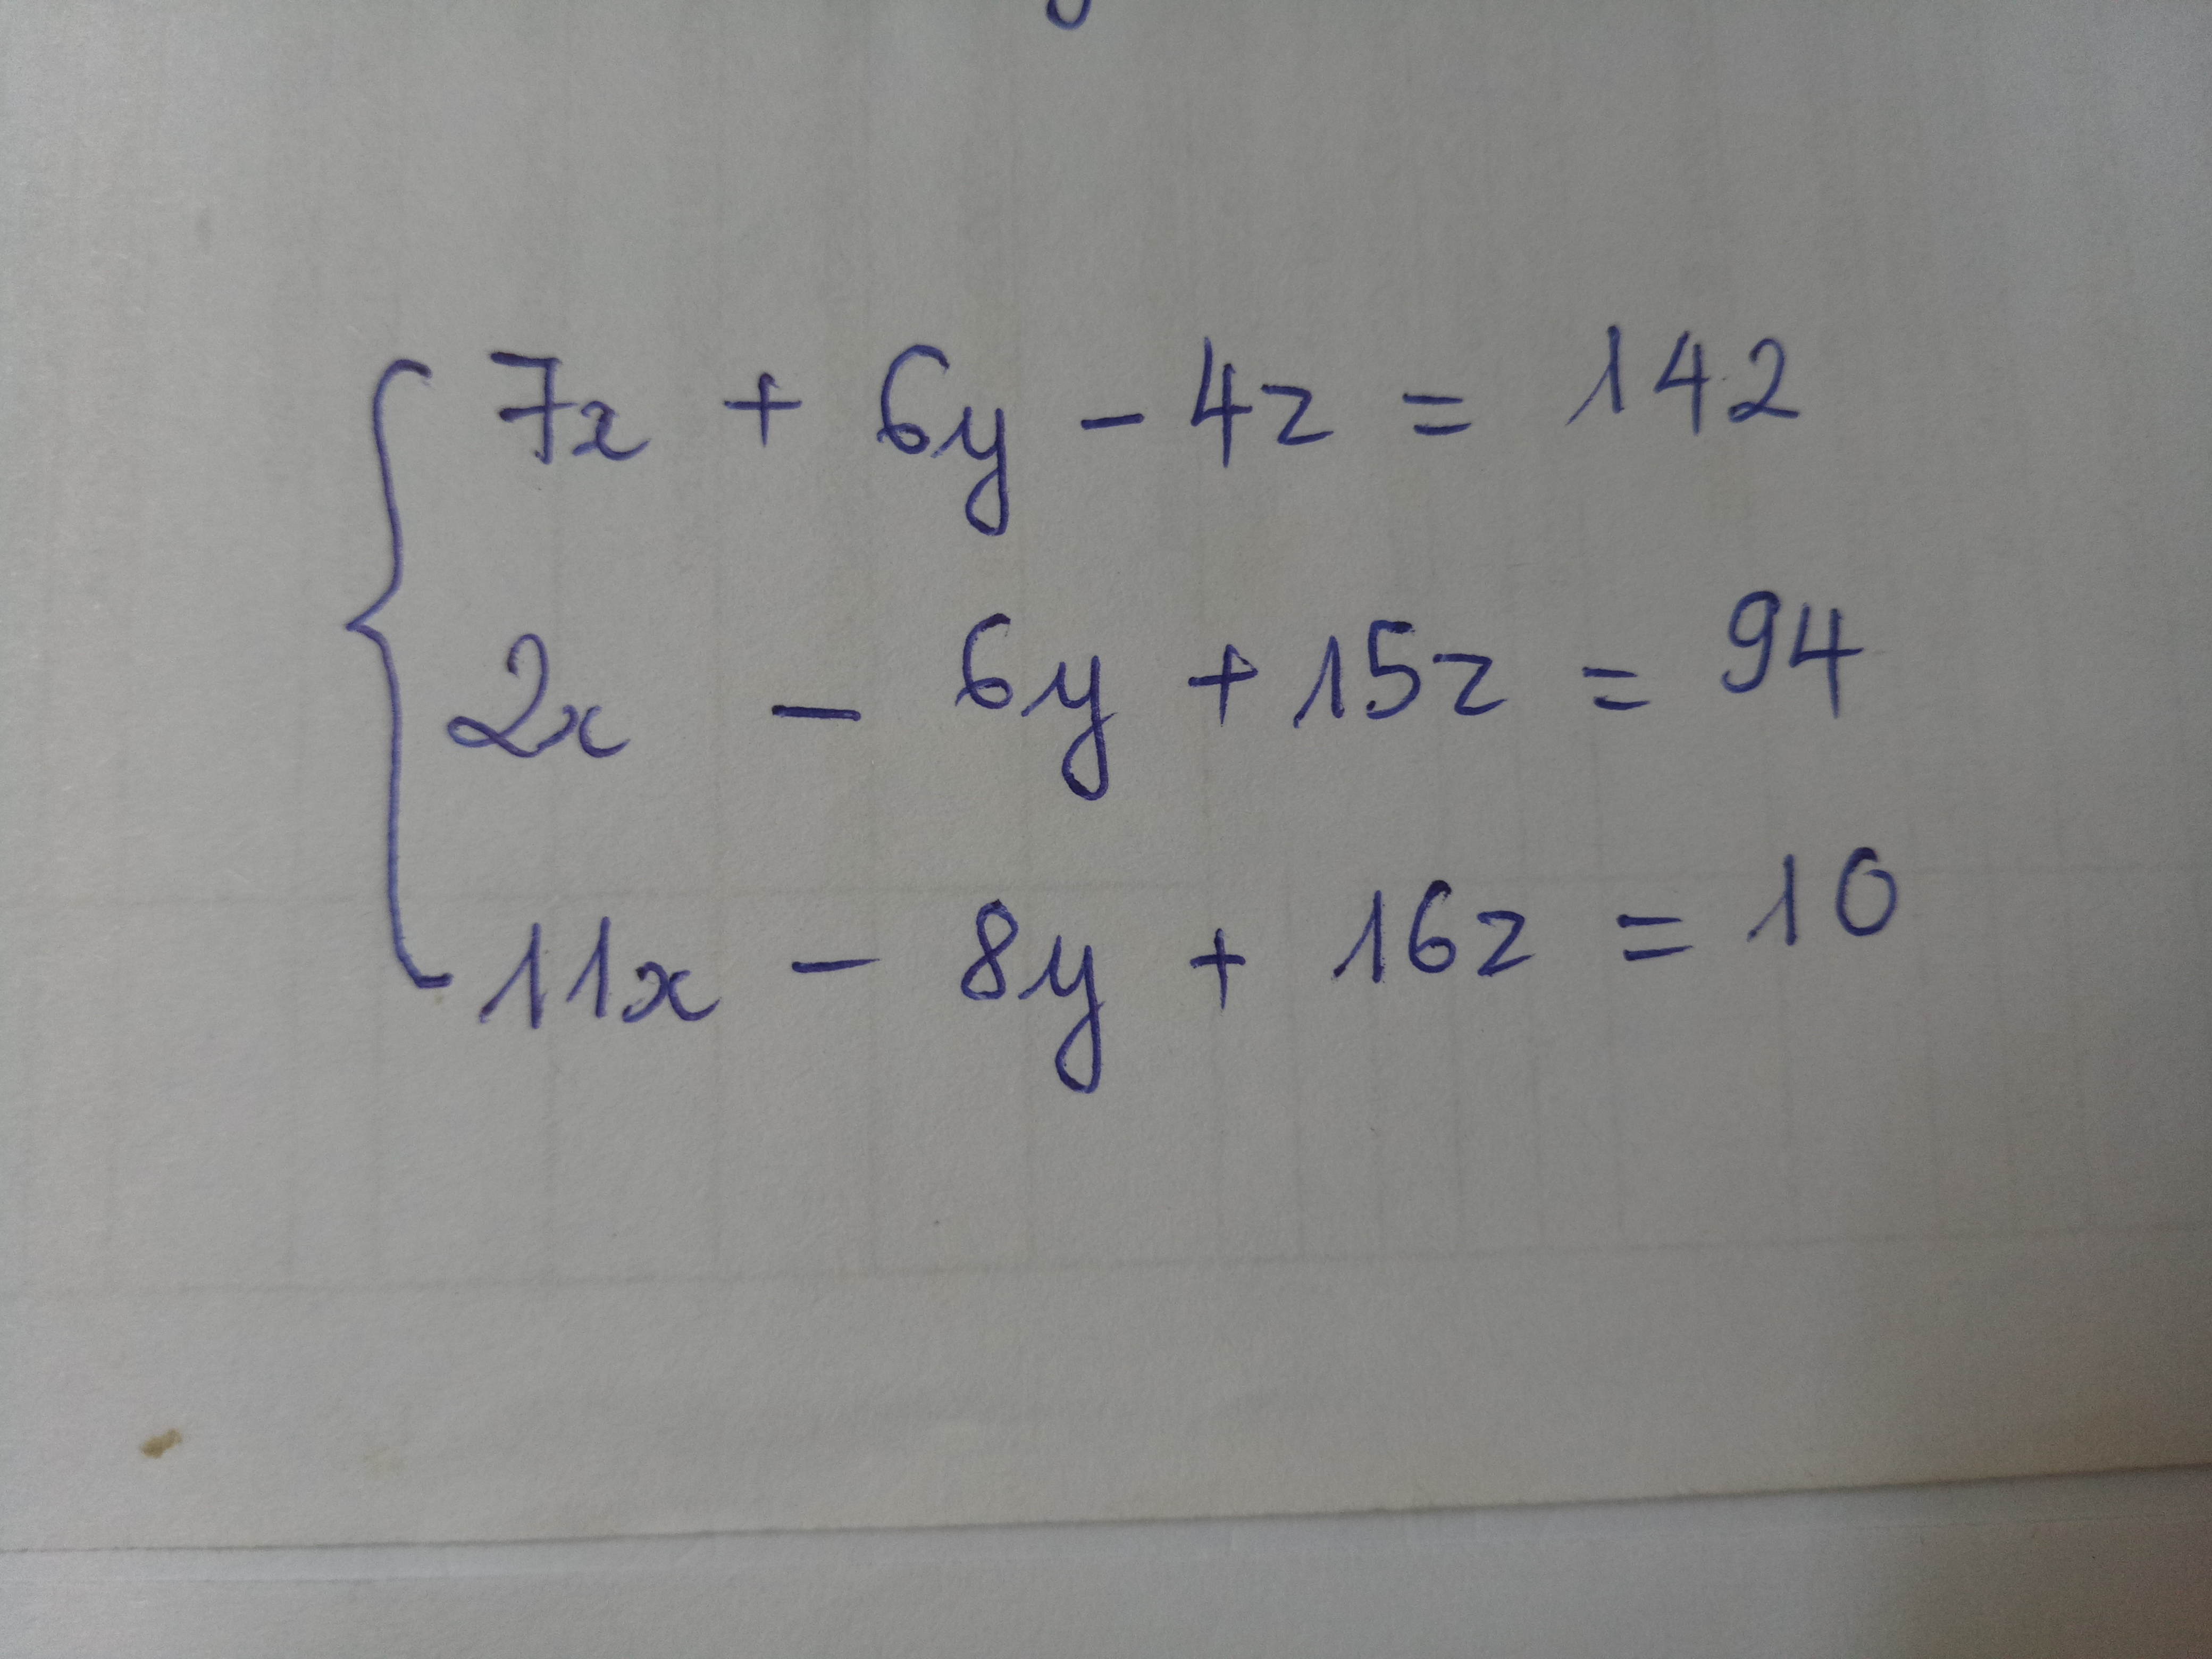 7x + 6y - 4z = 142
2x - 6y + 15z = 94
11x - 8y + 16z = 10